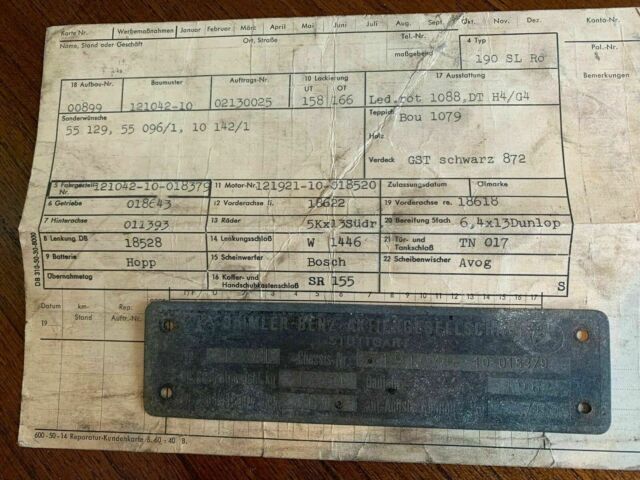 Karte Nr. Werbemaßnahmen Januar Februar März April Mai Juni Juli Aug. Sept. Okt. Nov. Dez. Konto-Nr.
Name, Stand oder Geschäft Ort, Straße Tel.-Nr. maßgebend 4 Typ Pal.-Nr.
190 SL Ro
18 Aufbau-Nr. Baumuster Auftrags-Nr. 10 Lackierung 17 Ausstattung Bemerkungen
UT OT
00899 121042-10 02130025 158 166 Led.rot 1088,DT H4/G4
Sonderwünsche Teppich Bou 1079
55 129, 55 096/1, 10 142/1
Holz
Verdeck GST schwarz 872
5 Fahrgestell Nr. 121042-10-018379 11 Motor-Nr. 121921-10-018520 Zulassungsdatum Olmarke
6 Getriebe 018643 12 Vorderachse li. 18622 19 Vorderachse re. 18618
7 Hinterachse 011393 13 Räder 5Kx13Südr 20 Bereifung Stück 6,4x13Dunlop
8 Lenkung DB 18528 14 Lenkungsschloß W 1446 21 Tür- und Tankschloß TN 017
9 Batterie Hopp 15 Scheinwerfer Bosch 22 Scheibenwischer Avog
Übernahmetag 16 Koffer- und Handschuhkastenschloß SR 155 S
DB 310-50-30-8000
Datum km- Rep.
19 Stand Auftr.-Nr.
DAIMLER-BENZ AKTIENGESELLSCH
STUTTGART
Chassis-Nr. 10 018379
600-50-14 Reparatur-Kundenkarte 5. 60 - 40 B.